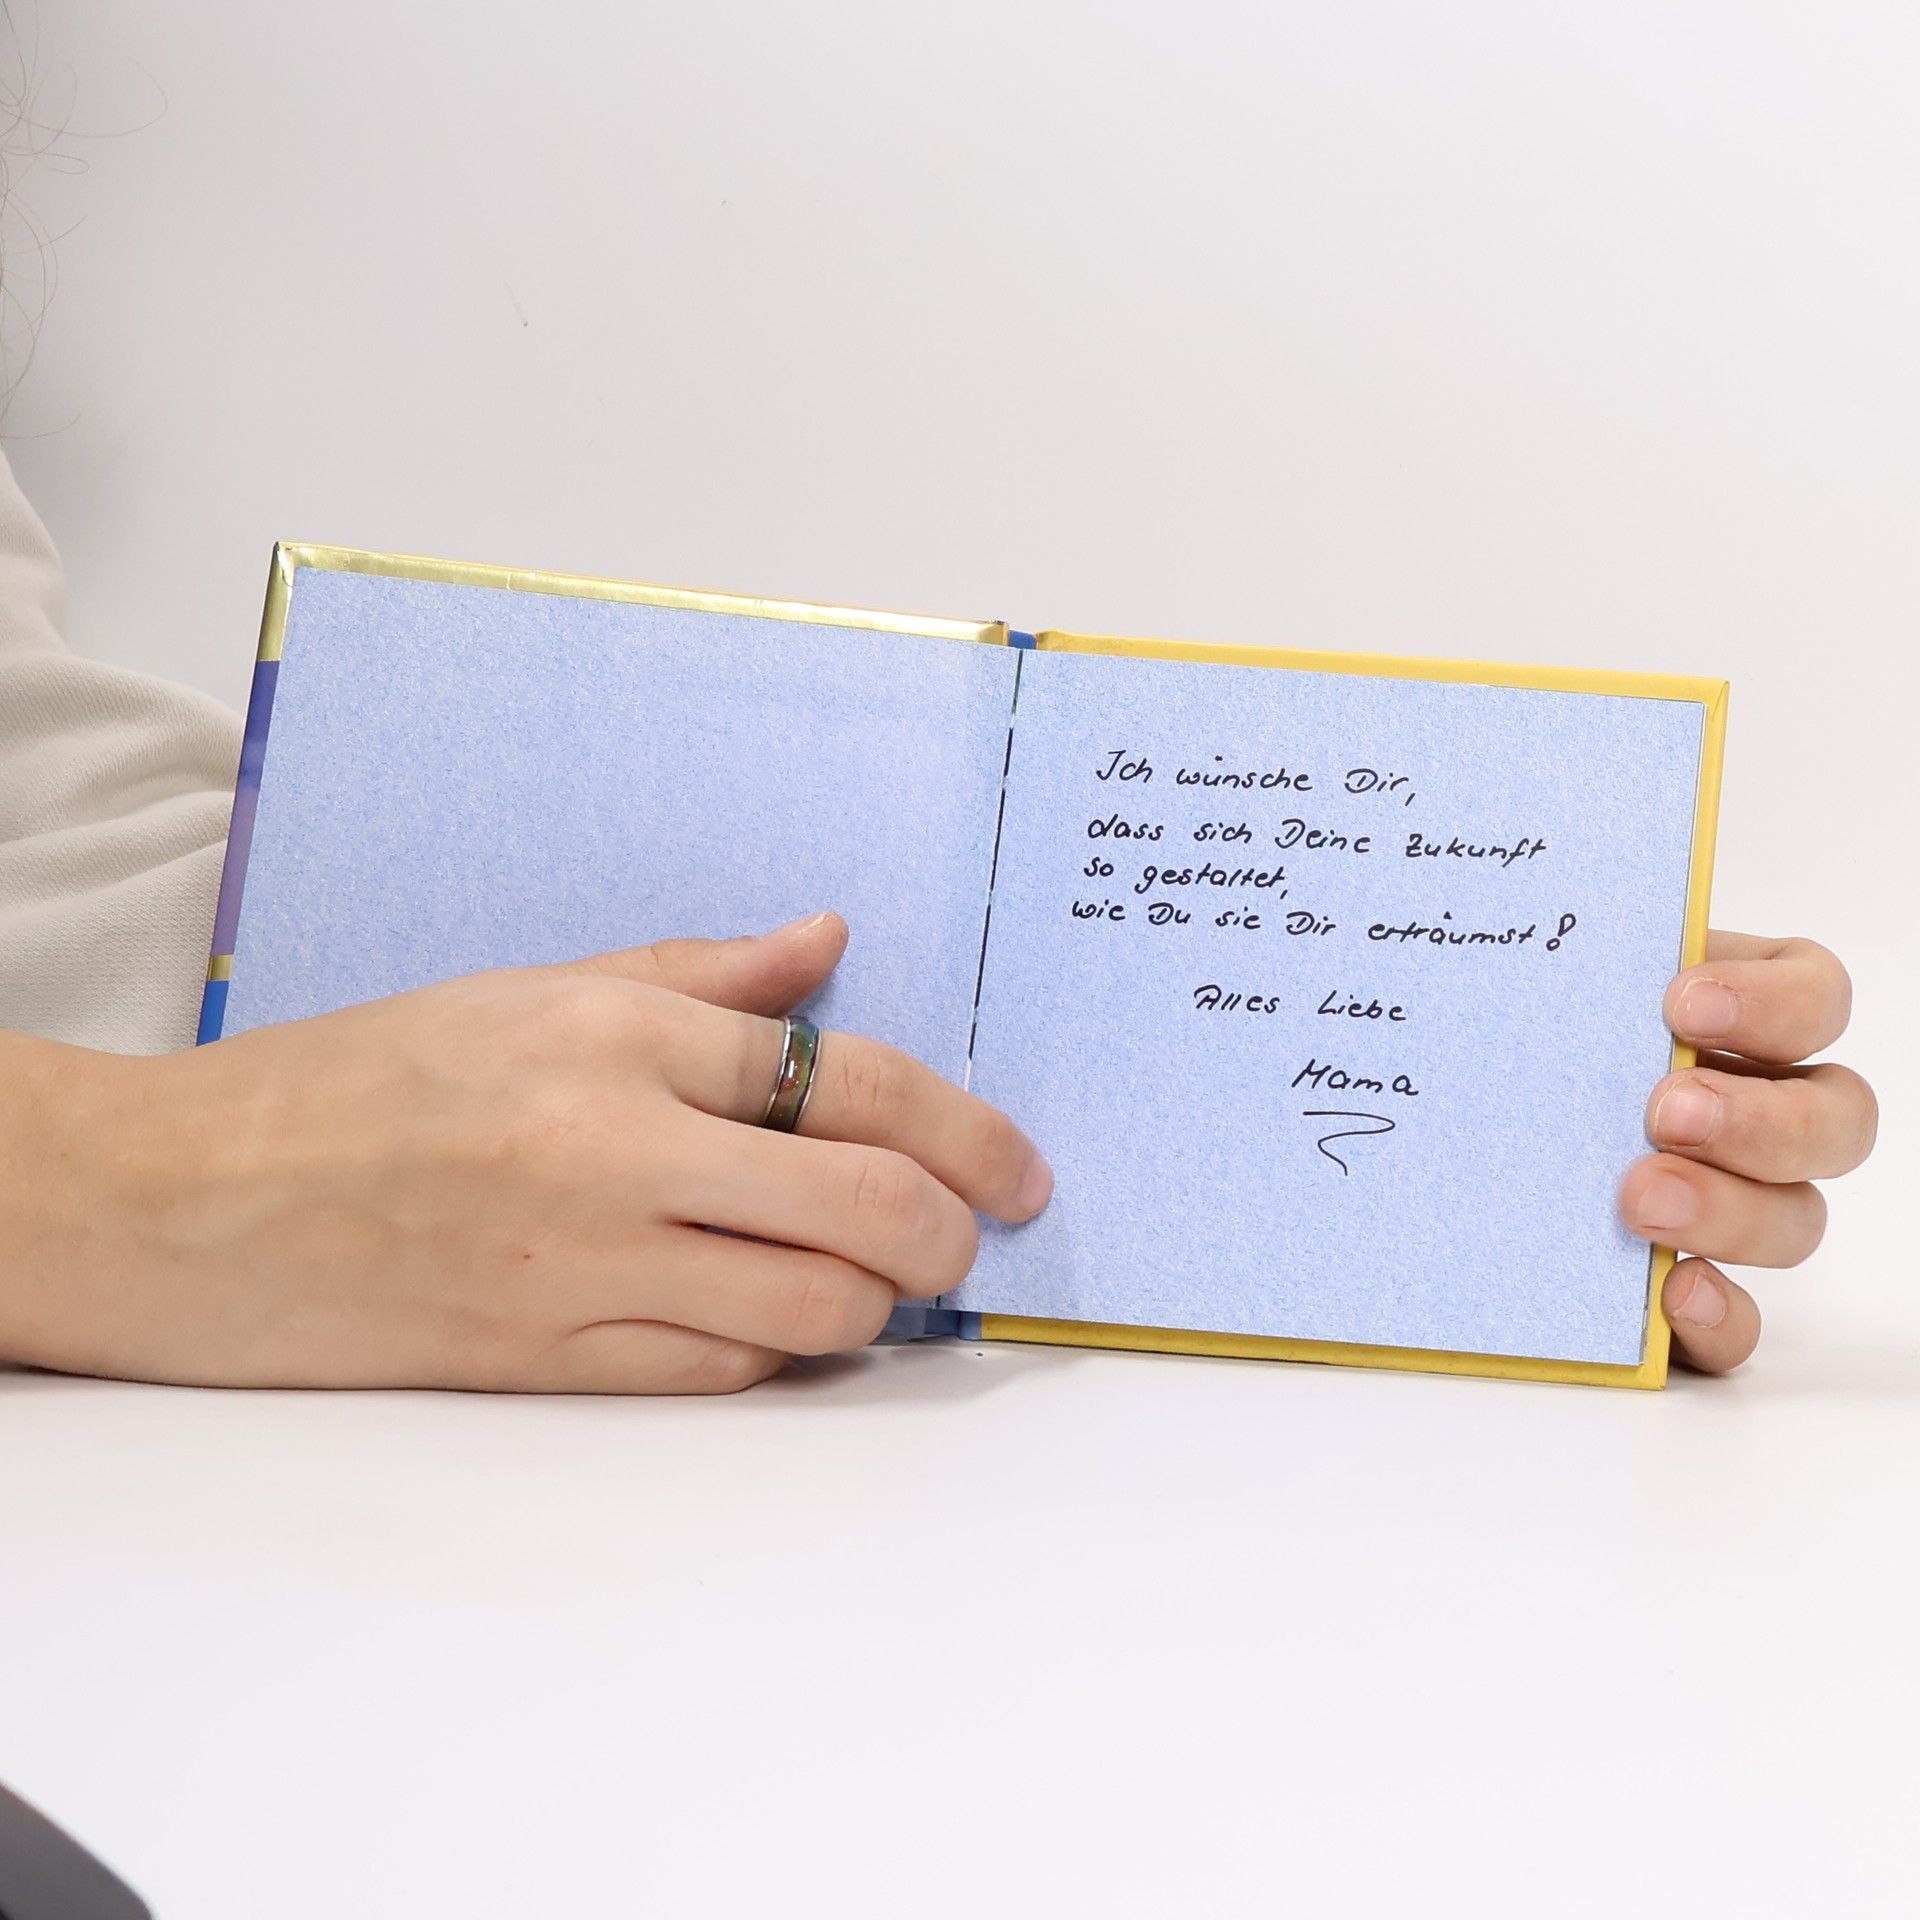 Ich wünsche Dir,
dass sich Deine Zukunft
so gestaltet,
wie Du sie Dir erträumst!
Alles Liebe
Mama